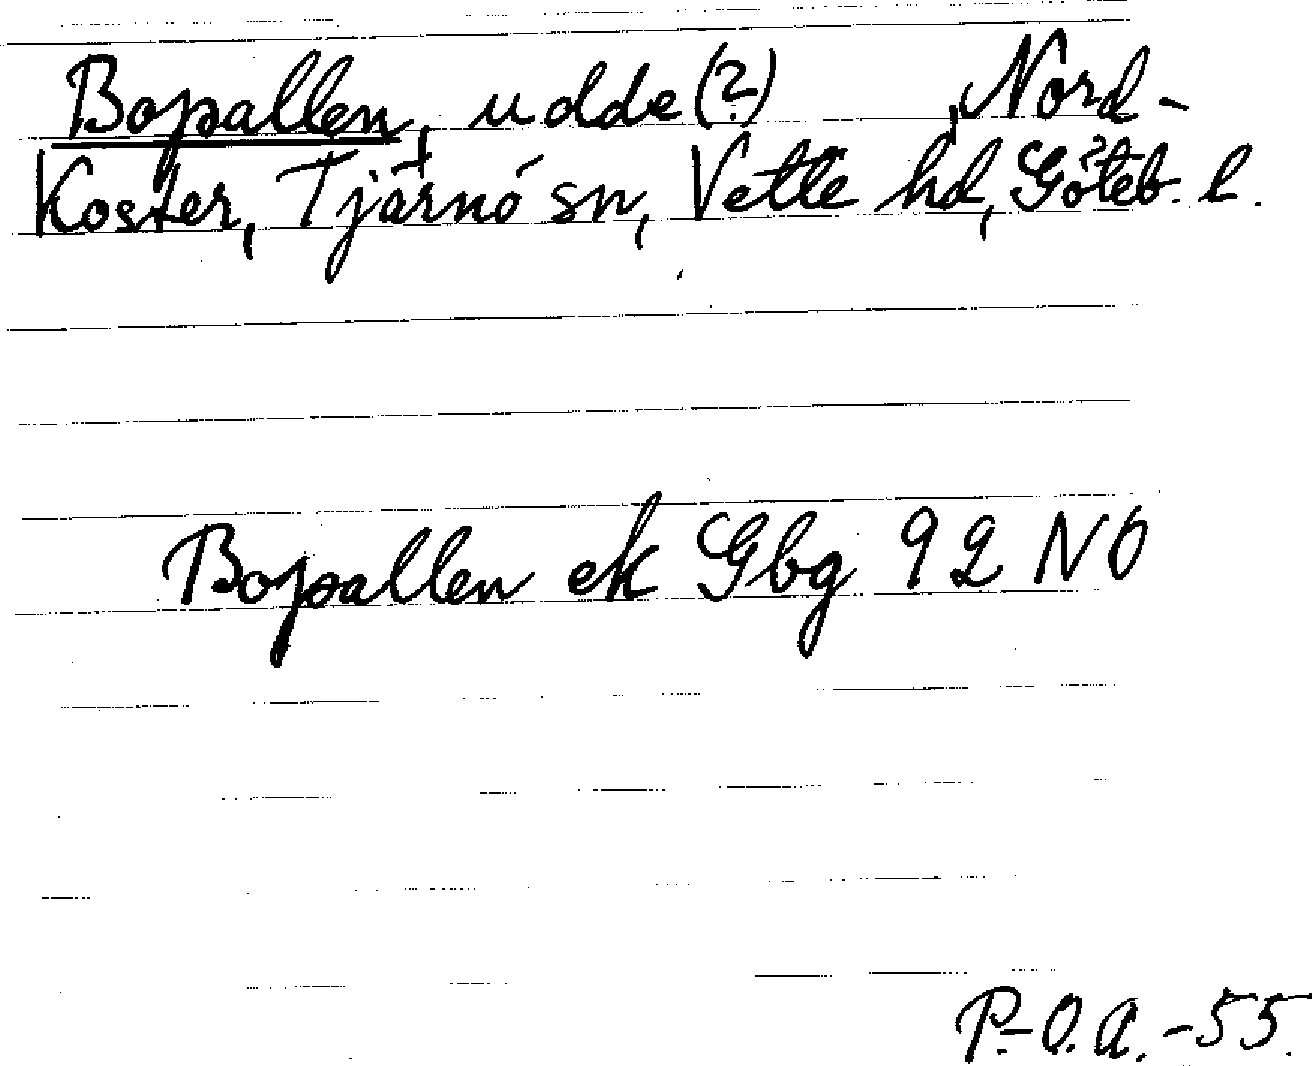 Bopallen, udde (?), Nord-
Koster, Tjärnö sn, Vette hd, Göteb. l.
Bopallen ek Gbg 92 NO
P.-O.A. -55.